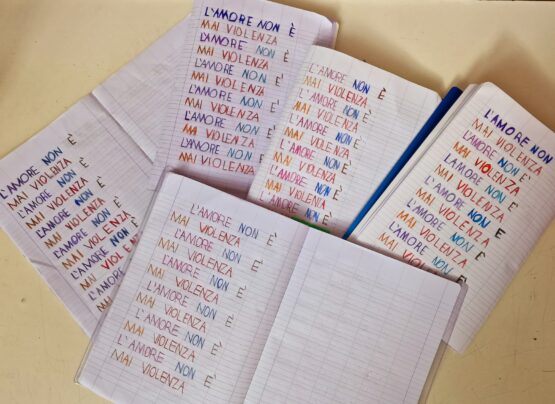 L'AMORE NON È
MAI VIOLENZA
L'AMORE NON È
MAI VIOLENZA
L'AMORE NON È
MAI VIOLENZA
L'AMORE NON È
MAI VIOLENZA
L'AMORE NON È
MAI VIOLENZA
L'AMORE NON È
MAI VIOLENZA
L'AMORE NON È
MAI VIOLENZA
L'AMORE NON È
MAI VIOLENZA
L'AMORE NON È
MAI VIOLENZA
L'AMORE NON È
MAI VIOLENZA
L'AMORE NON È
MAI VIOLENZA
L'AMORE NON È
L'AMORE NON
MAI VIOLENZA
L'AMORE NON È
MAI VIOLENZA
L'AMORE NON È
MAI VIOLENZA
L'AMORE NON È
MAI VIOLENZA
L'AMORE NON È
MAI VIOLENZA
L'AMORE NON È
L'AMORE NON È
MAI VIOLENZA
L'AMORE NON È
MAI VIOLENZA
L'AMORE NON È
MAI VIOLENZA
L'AMORE NON È
MAI VIOLENZA
L'AMORE NON È
MAI VIOLENZA
L'AMORE NON È
MAI VIOLENZA
L'AMORE NON È
MAI VIOLENZA
L'AMORE NON È
MAI VIOLENZA
L'AMORE NON È
MAI VIOLENZA
L'AMORE NON È
MAI VIOLENZA
L'AMORE NON È
MAI VIOLENZA